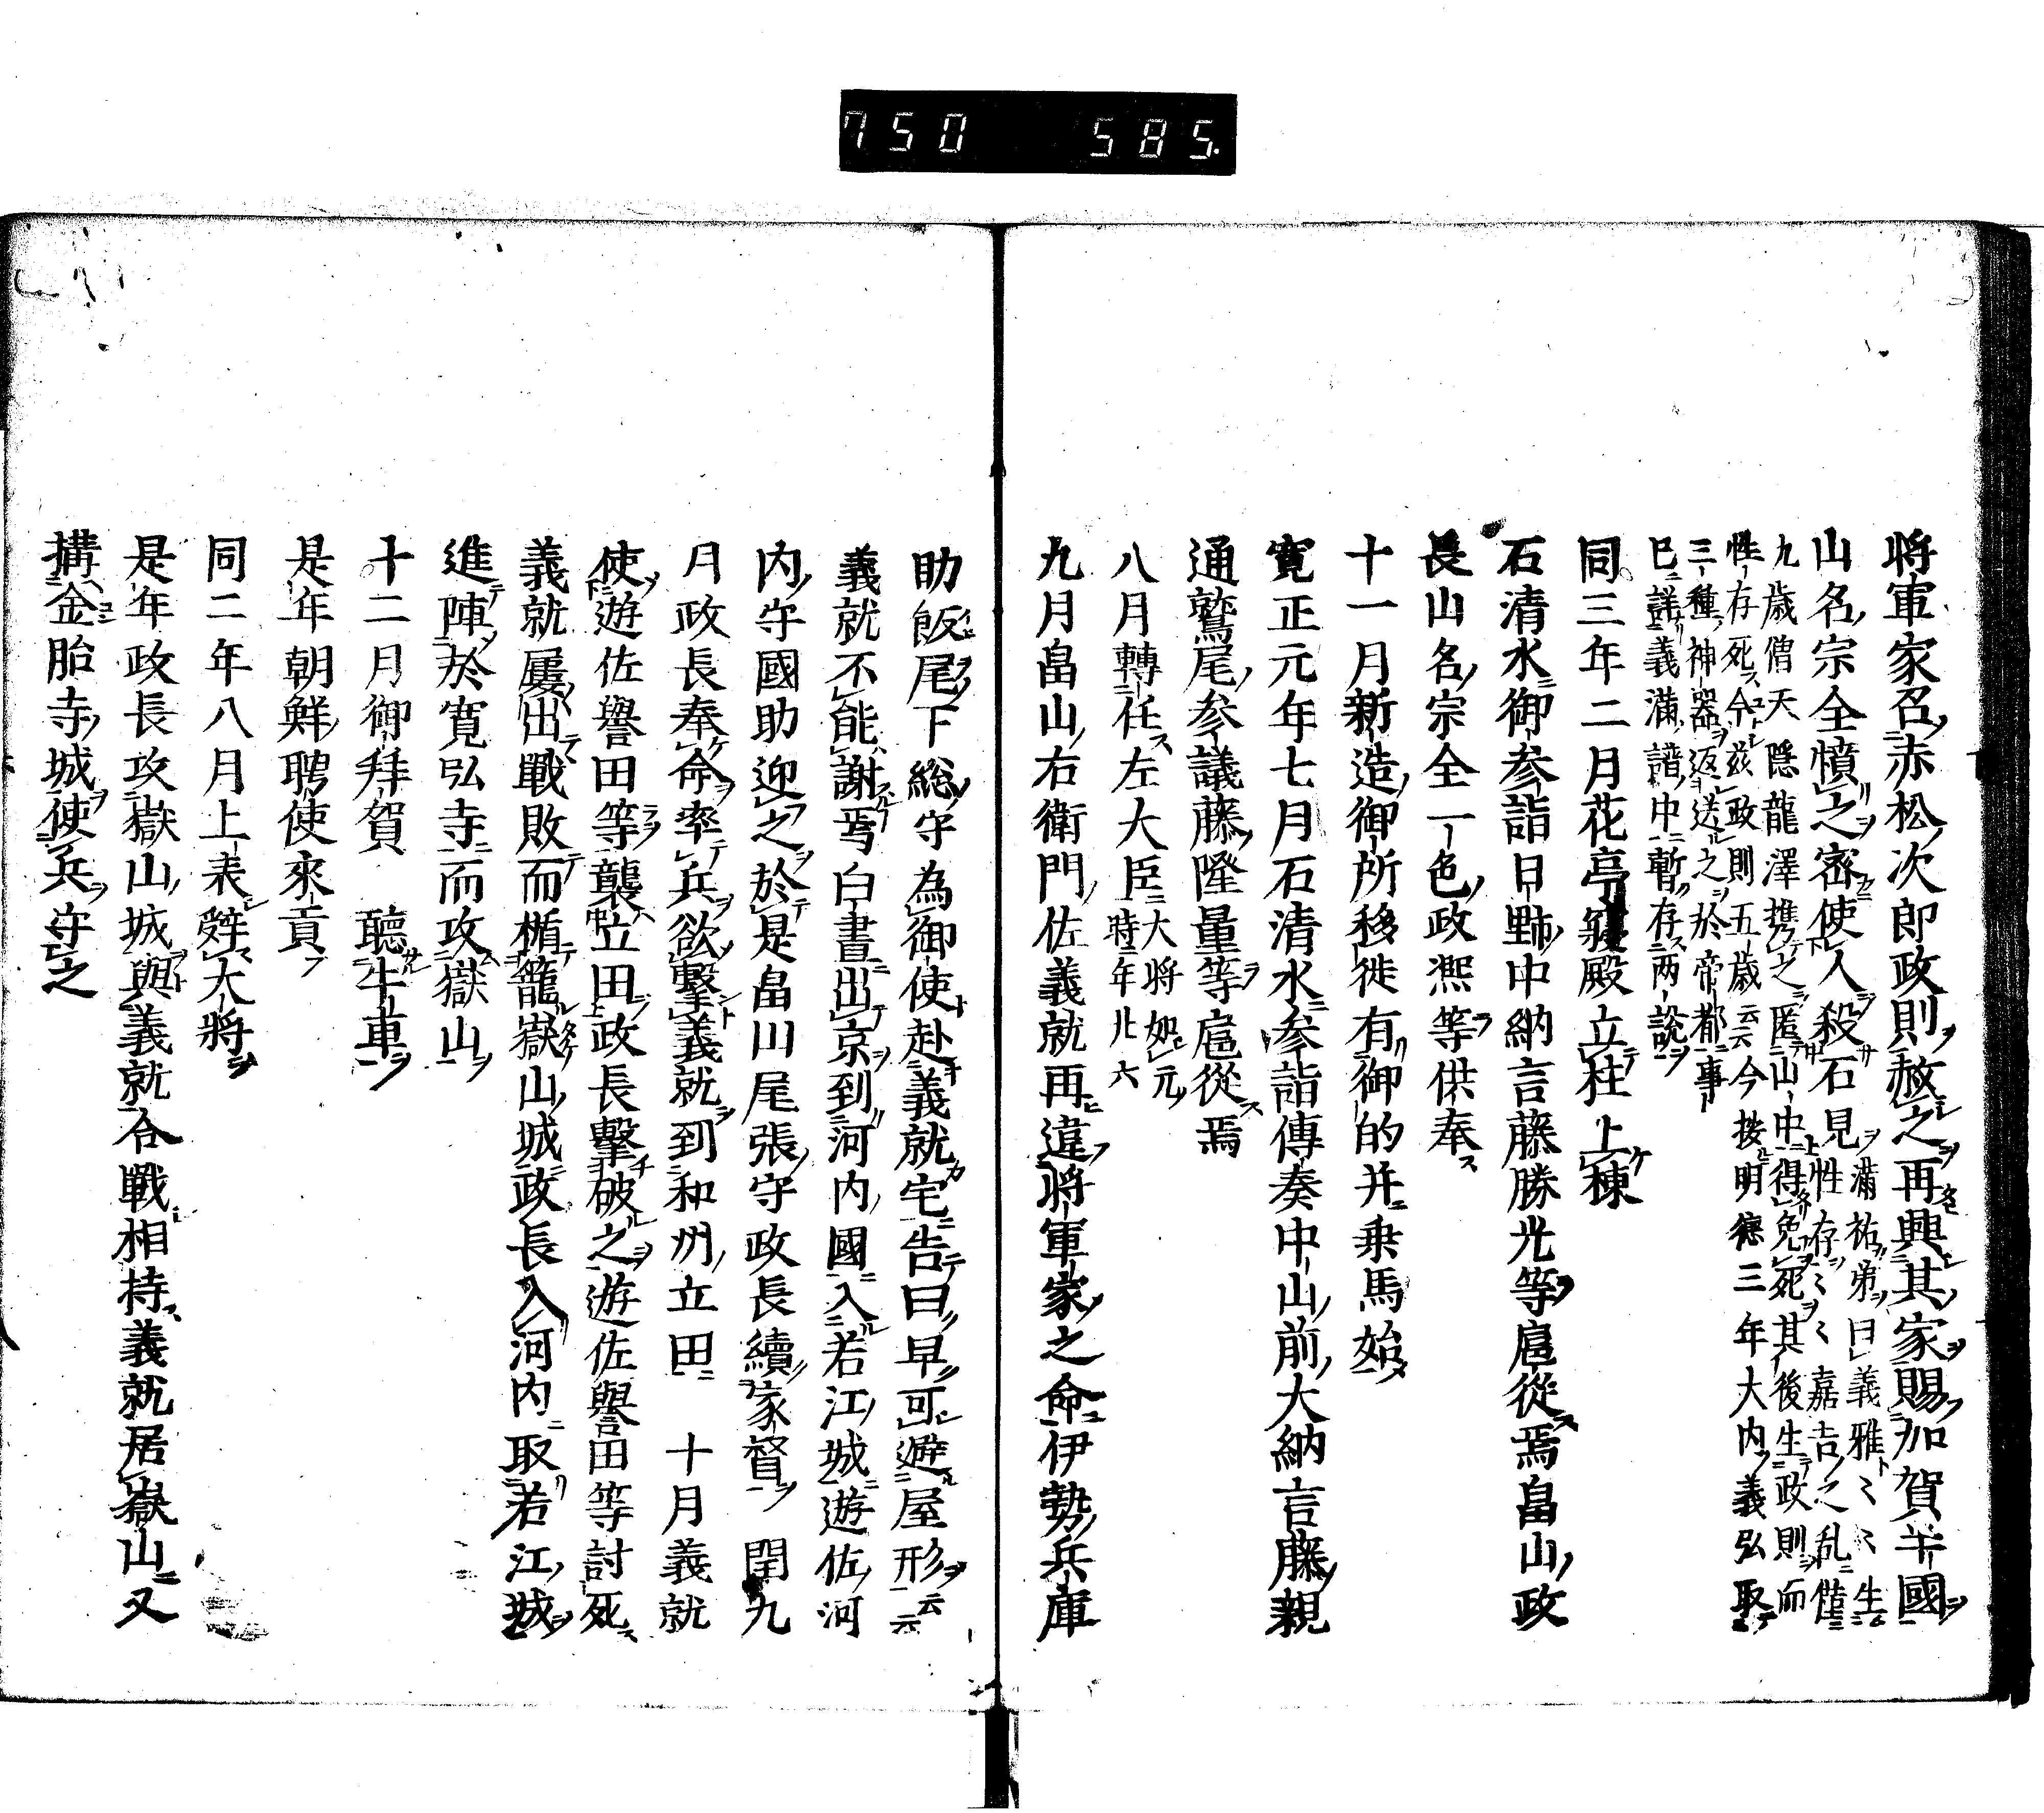 750 585.
將軍家召赤松次郎政則赦之再興其家賜加賀半國
山名宗全憤之密使人殺石見
滿祐弟曰義雅〻〻生
性存〻〻嘉吉之乱僅
九歳僧天隱龍澤携之匿山中得免死其後生政則而
性存死今茲政則五歳云云今按明德三年大内義弘取
三種神器返送之於帝都事
已詳義滿譜中暫存两說
同三年二月花亭寢殿立柱上棟
石清水御参詣日野中納言藤勝光等扈從焉畠山政
長山名宗全一色政凞等供奉
十一月新造御所移徙有御的并乗馬始
寛正元年七月石清水参詣傳奏中山前大納言藤親
通鷲尾参議藤隆量等扈從焉
八月轉任左大臣
大將如元
時年廾六
九月畠山右衛門佐義就再違將軍家之命伊勢兵庫
助飯尾下総守為御使赴義就宅告曰早可避屋形云云
義就不能謝焉白晝出京到河内國入若江城遊佐河
内守國助迎之於是畠川尾張守政長續家督 閏九
月政長奉命率兵欲擊義就到和州立田 十月義就
使遊佐譽田等襲立田政長擊破之遊佐譽田等討死
義就屢出戰敗而楯籠嶽山城政長入河内取若江城
進陣於寛弘寺而攻嶽山
十二月御拜賀 聽牛車
是年朝鮮聘使來貢
同二年八月上表辞大將
是年政長攻嶽山城與義就合戰相持義就居嶽山又
搆金胎寺城使兵守之